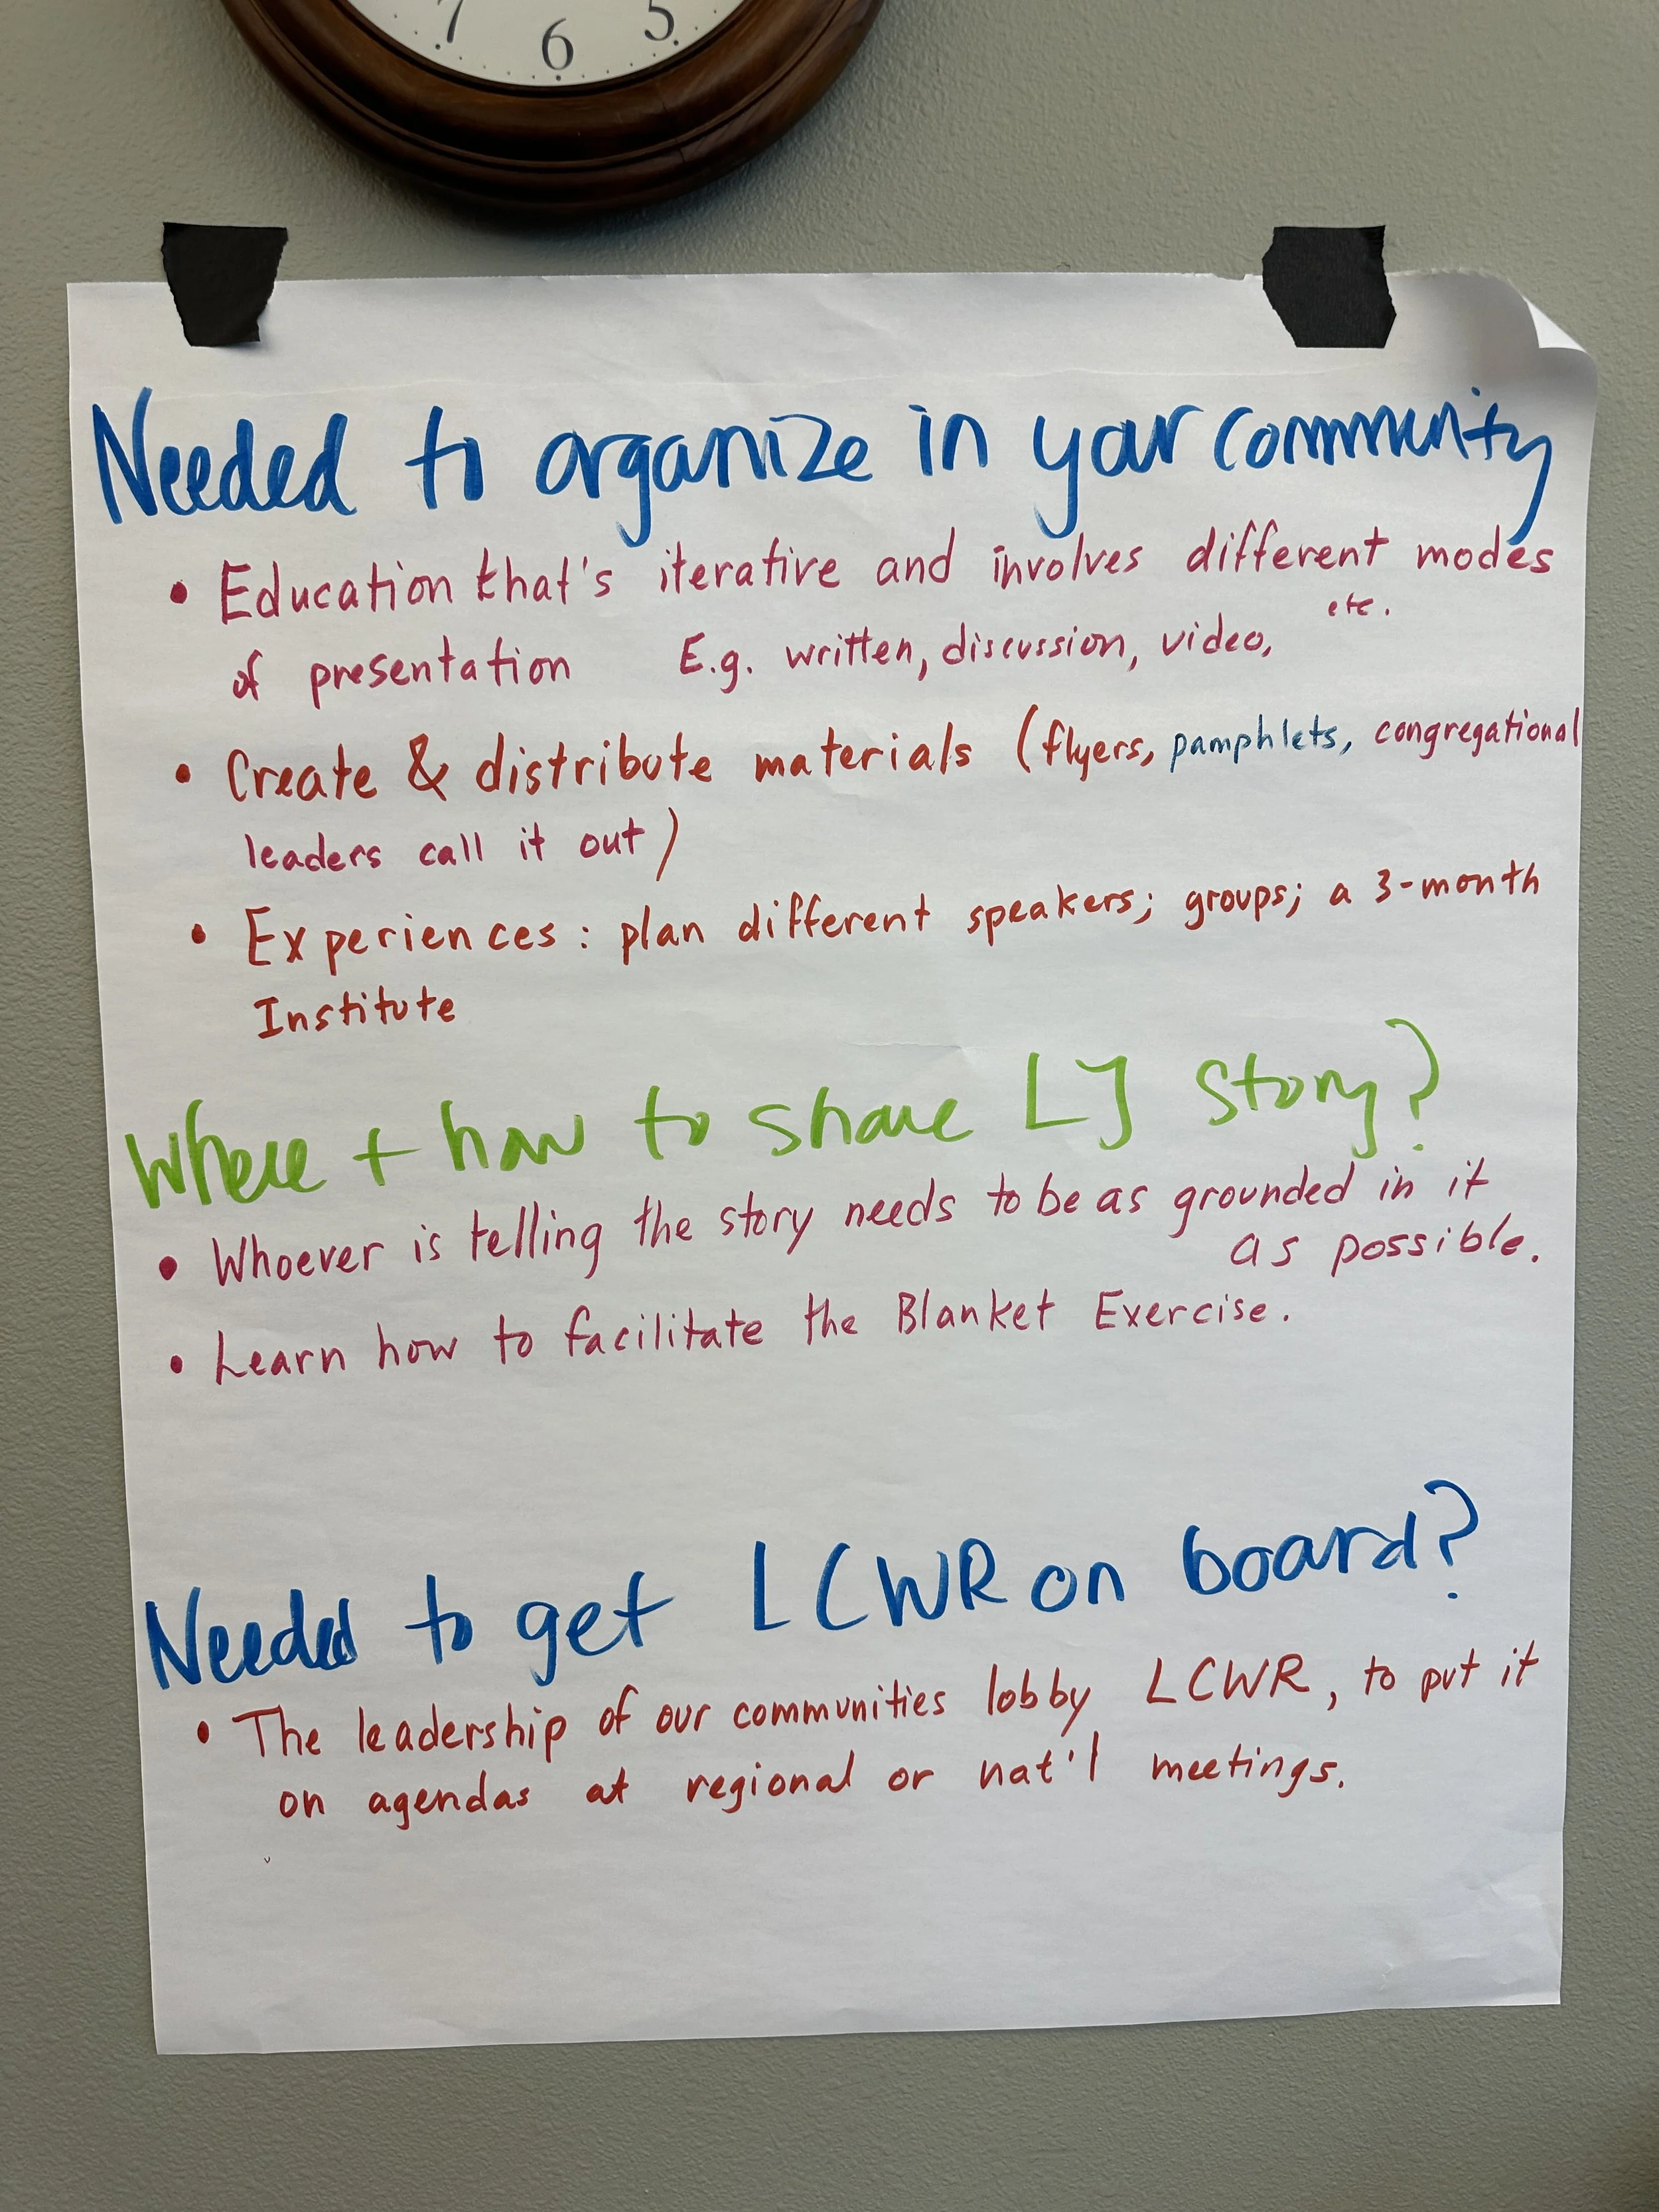 7 6 5
Needed to organize in your community
• Education that's iterative and involves different modes
of presentation E.g. written, discussion, video, etc.
• Create & distribute materials (flyers, pamphlets, congregational
leaders call it out)
• Experiences: plan different speakers; groups; a 3-month
Institute
Where + how to share LJ story?
• Whoever is telling the story needs to be as grounded in it
as possible.
• Learn how to facilitate the Blanket Exercise.
Needed to get LCWR on board?
• The leadership of our communities lobby LCWR, to put it
on agendas at regional or nat'l meetings.